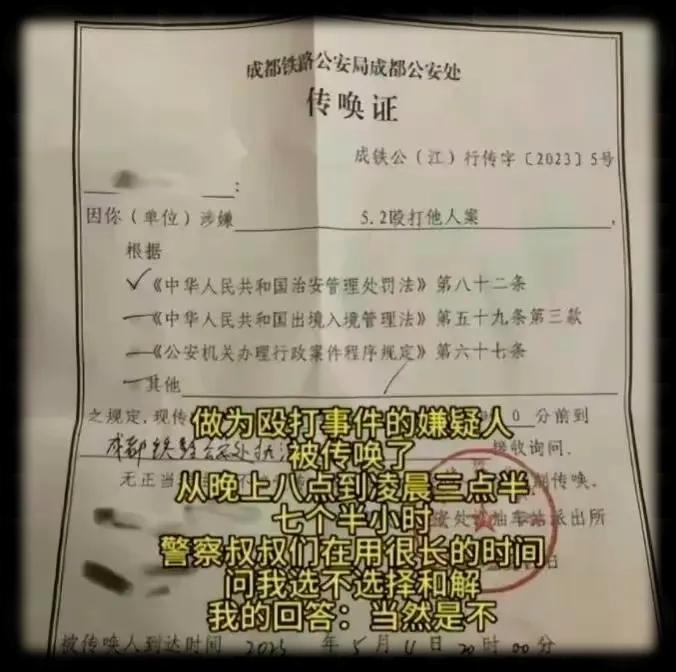 成都铁路公安局成都公安处
传唤证
成铁公（江）行传字〔2023〕5号
：
因你（单位）涉嫌 5.2殴打他人案 ，
根据
✓《中华人民共和国治安管理处罚法》第八十二条
—《中华人民共和国出境入境管理法》第五十九条第三款
—《公安机关办理行政案件程序规定》第六十七条
—其他
之规定，现传 0 分前到
做为殴打事件的嫌疑人
成都铁路公安处 接收询问.
被传唤了
无正当 传唤.
从晚上八点到凌晨三点半
七个半小时
油车站派出所
警察叔叔们在用很长的时间
日
问我选不选择和解
我的回答：当然是不
被传唤人到达时间 2023 年 5 月 4 日 20 时 00 分